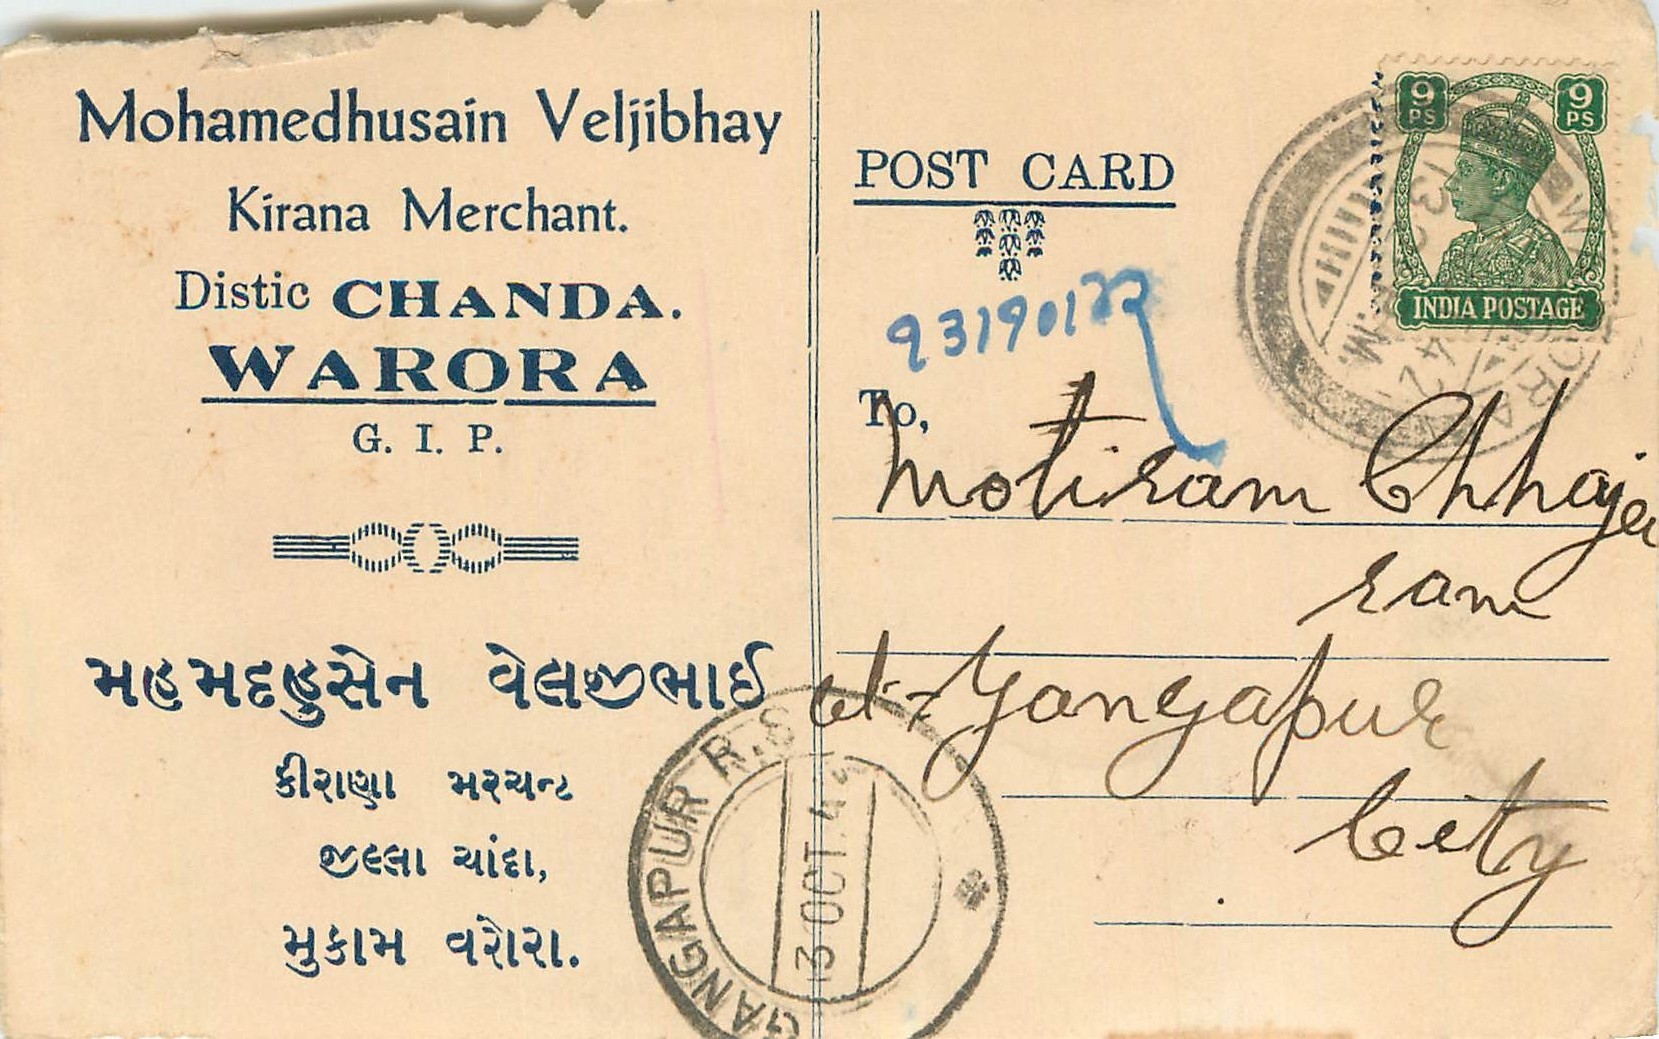 Mohamedhusain Veljibhay
Kirana Merchant.
Distic CHANDA.
WARORA
G. I. P.
મહમદહુસેન વેલજીભાઈ
કીરાણા મરચન્ટ
જીલ્લા ચાંદા,
મુકામ વરોરા.
POST CARD
9 PS 9 PS
INDIA POSTAGE
To,
Motiram Chhajer
ram
Gangapur
City
GANGAPUR R.S
13 OCT. 42